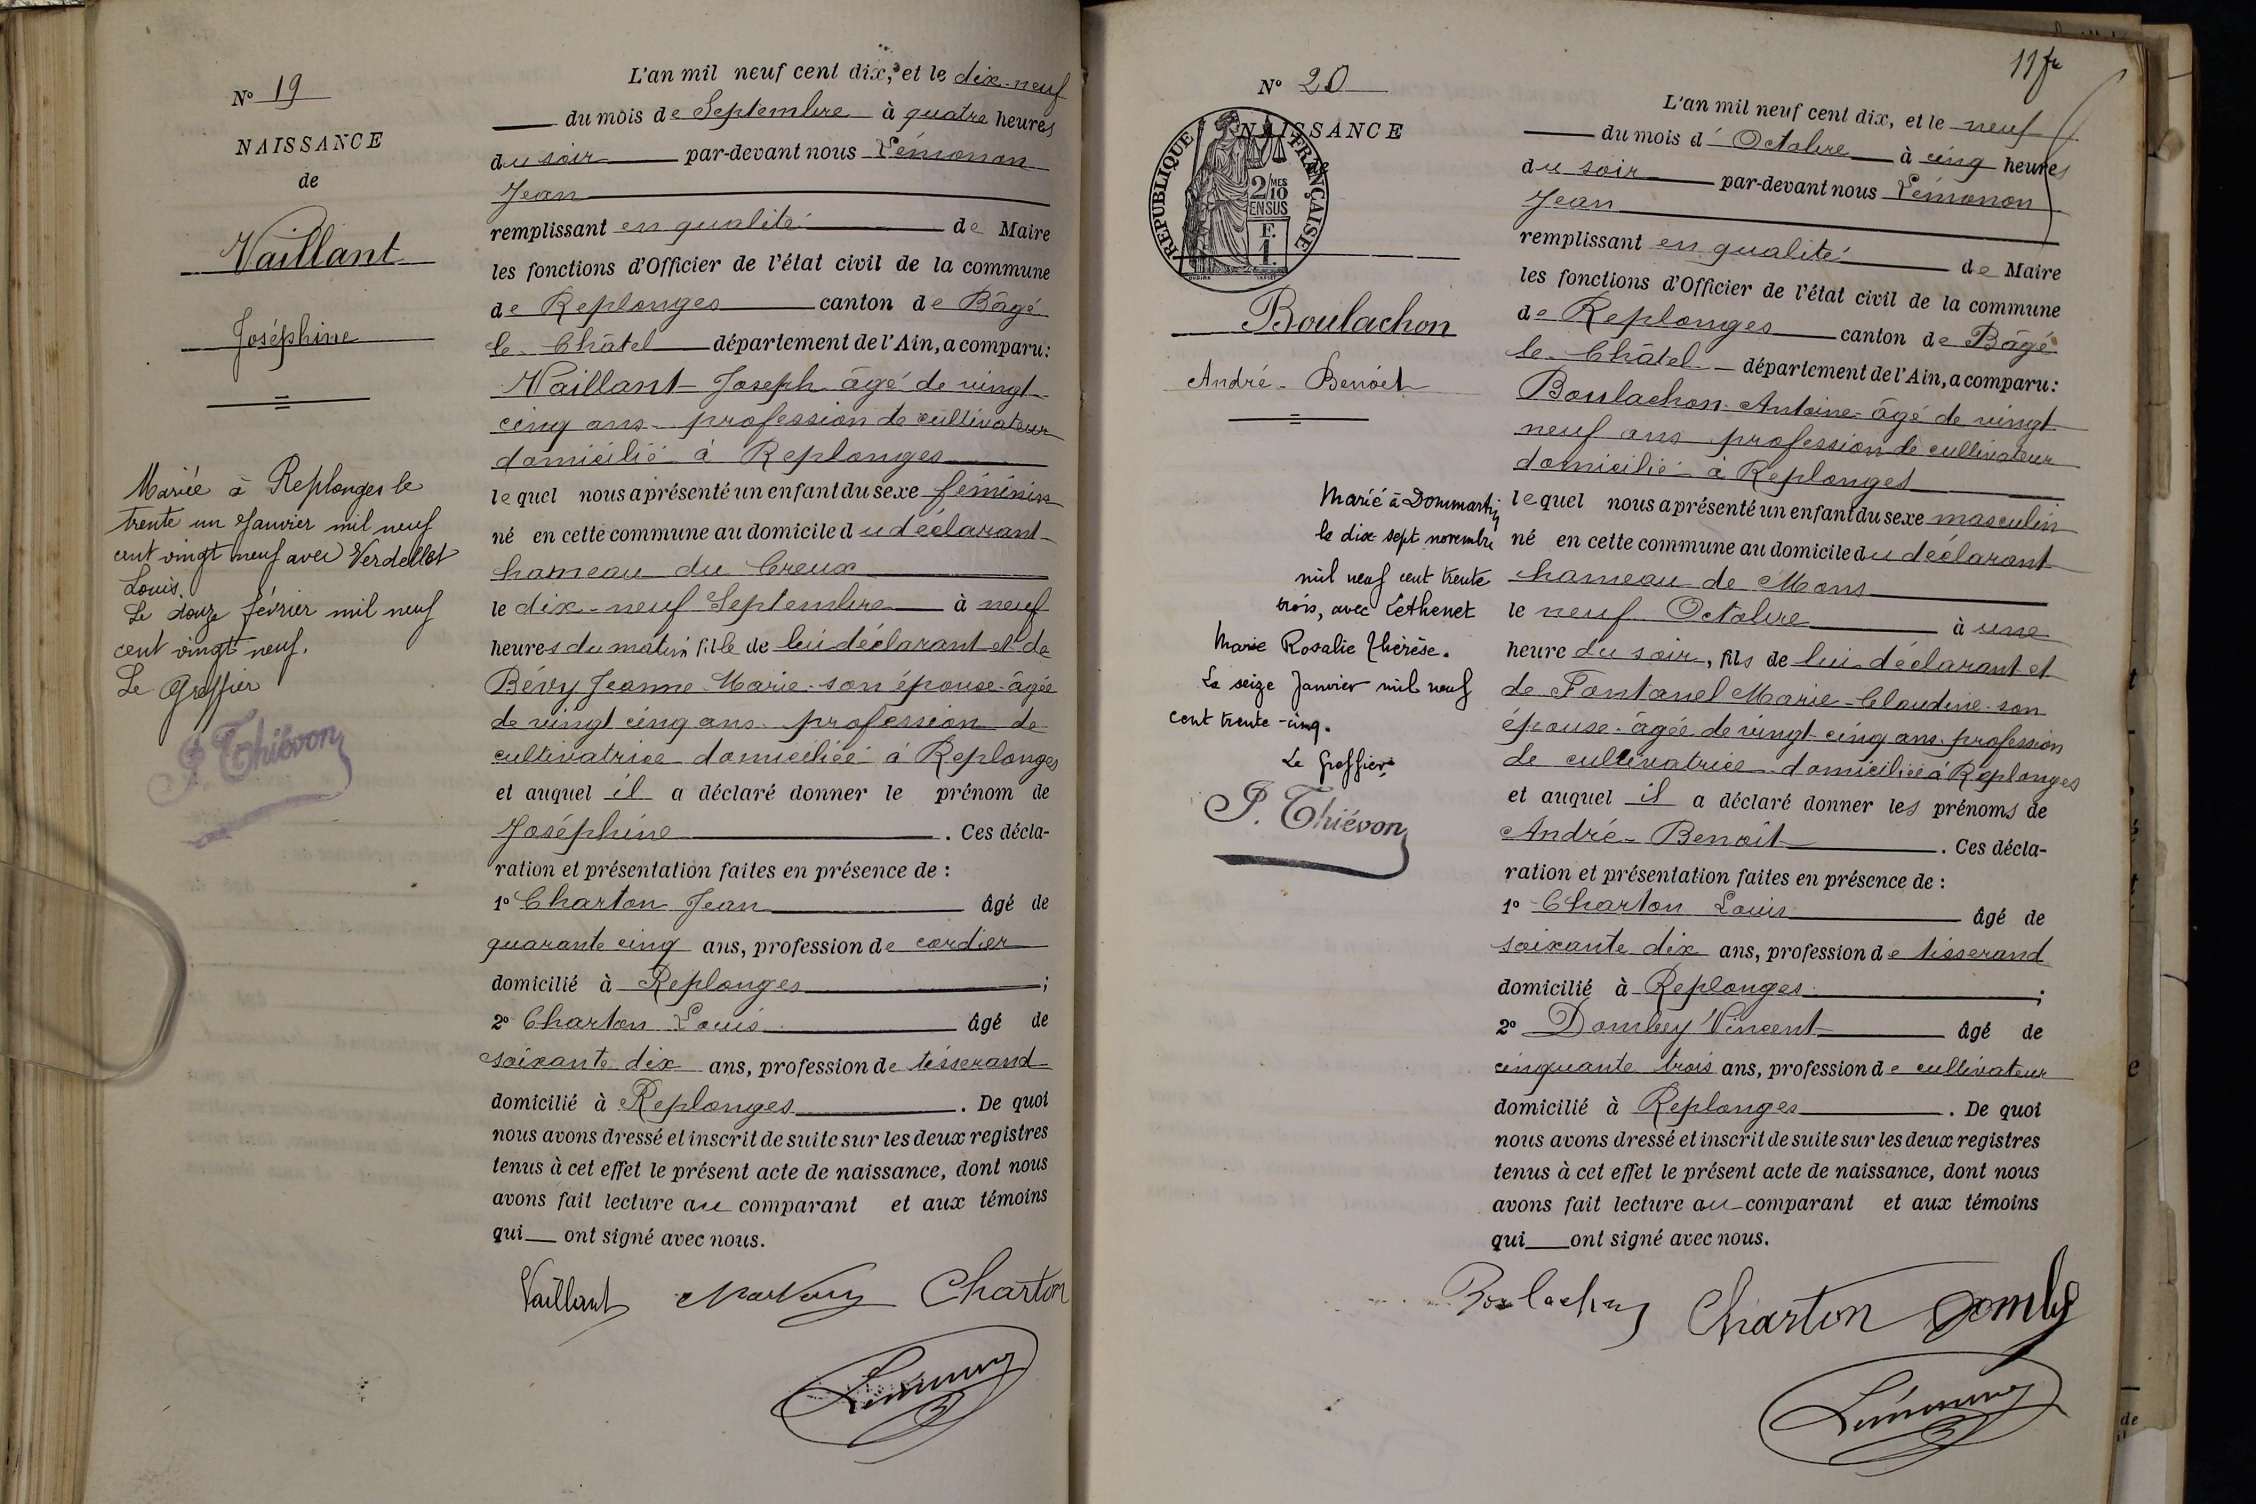 N° 19
NAISSANCE
de
Vaillant
Joséphine
Mariée à Replonges le
trente un Janvier mil neuf
cent vingt neuf avec Verdellet
Louis.
Le douze février mil neuf
cent vingt neuf.
Le Greffier
P. Thiévon
L'an mil neuf cent dix, et le dix-neuf
du mois de Septembre à quatre heures
du soir par-devant nous Lémonon
Jean
remplissant en qualité de Maire
les fonctions d'Officier de l'état civil de la commune
de Replonges canton de Bâgé
le Châtel département de l'Ain, a comparu:
Vaillant Joseph âgé de vingt
cinq ans profession de cultivateur
domicilié à Replonges
lequel nous a présenté un enfant du sexe féminin
né en cette commune au domicile du déclarant
hameau du Creux
le dix-neuf Septembre à neuf
heures du matin fille de lui déclarant et de
Bévy Jeanne Marie son épouse âgée
de vingt cinq ans profession de
cultivatrice domiciliée à Replonges
et auquel il a déclaré donner le prénom de
Joséphine . Ces décla-
ration et présentation faites en présence de :
1° Charton Jean âgé de
quarante cinq ans, profession de cordier
domicilié à Replonges ;
2° Charton Louis âgé de
soixante dix ans, profession de tisserand
domicilié à Replonges . De quoi
nous avons dressé et inscrit de suite sur les deux registres
tenus à cet effet le présent acte de naissance, dont nous
avons fait lecture au comparant et aux témoins
qui ont signé avec nous.
Vaillant Charton
Lémonon
11 fr
N° 20
NAISSANCE
de
REPUBLIQUE FRANÇAISE
2/10 MES
EN SUS
F.
1.
Boulachon
André-Benoît
Marié à Dommartin
le dix-sept novembre
mil neuf cent trente
trois, avec Léthenet
Marie Rosalie Thérèse.
Le seize Janvier mil neuf
cent trente-cinq.
Le Greffier
P. Thiévon
L'an mil neuf cent dix, et le neuf
du mois d' Octobre à cinq heures
du soir par-devant nous Lémonon
Jean
remplissant en qualité de Maire
les fonctions d'Officier de l'état civil de la commune
de Replonges canton de Bâgé
le Châtel département de l'Ain, a comparu:
Boulachon Antoine âgé de vingt
neuf ans profession de cultivateur
domicilié à Replonges
lequel nous a présenté un enfant du sexe masculin
né en cette commune au domicile du déclarant
hameau de Mons
le neuf Octobre à une
heure du soir, fils de lui déclarant et
de Fontanel Marie-Claudine son
épouse âgée de vingt-cinq ans profession
de cultivatrice domiciliée à Replonges
et auquel il a déclaré donner les prénoms de
André-Benoît . Ces décla-
ration et présentation faites en présence de :
1° Charton Louis âgé de
soixante dix ans, profession de tisserand
domicilié à Replonges ;
2° Dombey Vincent âgé de
cinquante trois ans, profession de cultivateur
domicilié à Replonges . De quoi
nous avons dressé et inscrit de suite sur les deux registres
tenus à cet effet le présent acte de naissance, dont nous
avons fait lecture au comparant et aux témoins
qui ont signé avec nous.
Boulachon Charton Domby
Lémonon